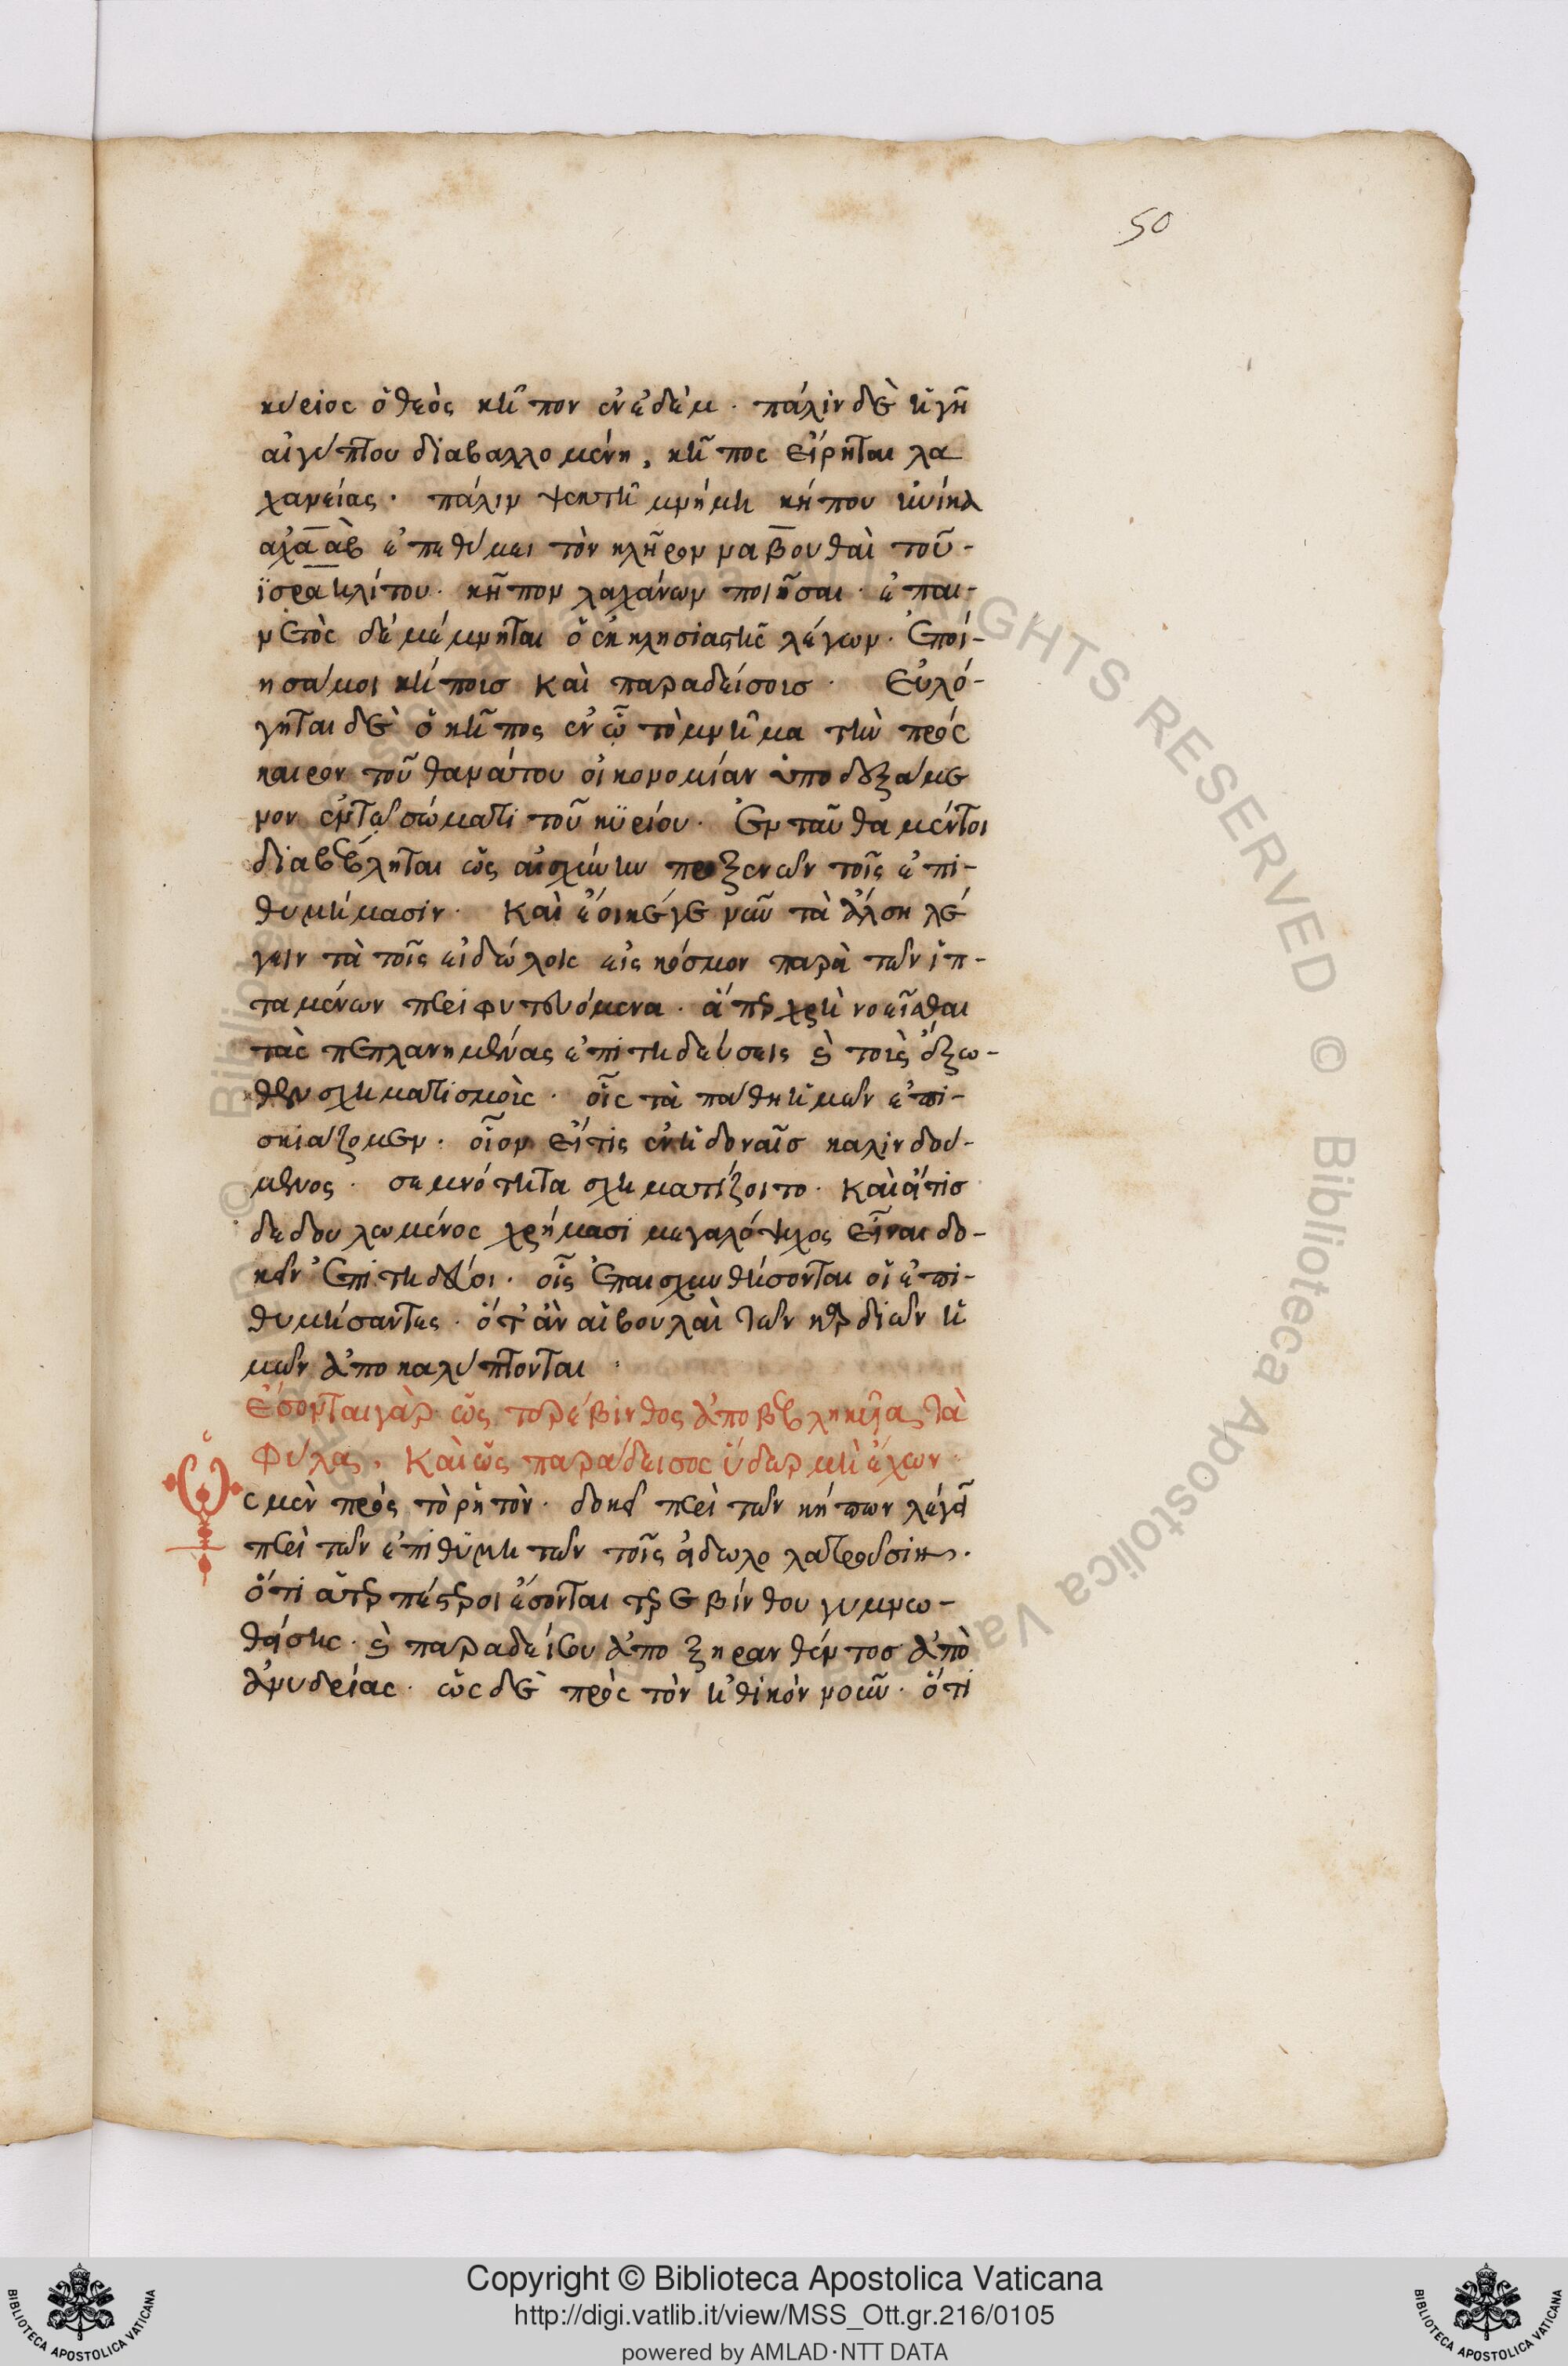 50
κύριος ὁ θεὸς κῆπον ἐν ἐδέμ · πάλιν δὲ ἡ γῆ
αἰγύπτου διαβαλλομένη, κῆπος εἴρηται λα
χανείας · πάλιν ψεκτῆ μνήμη κήπου ἡνίκα
ἀχαὰβ ἐπεθύμει τὸν κλῆρον ναβουθαὶ τοῦ -
ϊσραηλίτου · κῆπον λαχάνων ποιῆσαι · ἐπαι -
νετὸς δὲ μέμνηται ὁ ἐκκλησιαστὴς λέγων · ἐποί -
ησά μοι κήποις καὶ παραδείσοις · εὐλό -
γηται δὲ ὁ κῆπος ἐν ᾧ τὸ μνῆμα τὴν πρὸς
καιρὸν τοῦ θανάτου οἰκονομίαν ὑποδεξάμε
νον ἐν τῷ σώματι τοῦ κυρίου · ἐνταῦθα μέντοι
διαβέβληται ὡς αἰσχύνην προξενῶν τοῖς ἐπι -
θυμήμασιν · καὶ ἔοικέ γε νῦν τὰ ἄλση λέ
γειν τὰ τοῖς εἰδώλοις εἰς κόσμον παρὰ τῶν ἡπ -
ταμένων περιφυτευόμενα · ἅπερ χρὴ νοεῖσθαι
τὰς πεπλανημένας ἐπιτηδεύσεις ἐν τοῖς ἔξω -
θεν σχηματισμοῖς · οἷς τὰ πάθη ἡμῶν ἐπι -
σκιάζομεν · οἷον εἴ τις ἐν ἡδοναῖς καλινδού -
μενος · σεμνότητα σχηματίζοιτο · καὶ εἴ τις
δεδουλωμένος χρήμασι μεγαλόψυχος εἶναι δο -
κεῖν ἐπιτηδεύοι · οἷς ἐπαισχυνθήσονται οἱ ἐπι -
θυμήσαντες · ὅτ' ἂν αἱ βουλαὶ τῶν καρδιῶν ἡ
μῶν ἀποκαλύπτονται ·
ἔσονται γὰρ ὡς τερέβινθος ἀποβεβληκυῖα τὰ
φύλα, καὶ ὡς παράδεισος ὕδωρ μὴ ἔχων ·
Ὡς μὲν πρὸς τὸ ῥητὸν · δοκεῖ περὶ τῶν κήπων λέγει
περὶ τῶν ἐπιθυμητῶν τοῖς εἰδωλολατροῦσιν ·
ὅτι ἀτερπέστεροι ἔσονται τερεβίνθου γυμνω -
θείσης · καὶ παραδείσου ἀποξηρανθέντος ἀπὸ
ἀνυδρίας · ὡς δὲ πρὸς τὸν ἠθικὸν νοῦν · ὅτι
© Biblioteca Apostolica Vaticana
RIGHTS RESERVED © Biblioteca Apostolica Vaticana
Copyright © Biblioteca Apostolica Vaticana
http://digi.vatlib.it/view/MSS_Ott.gr.216/0105
powered by AMLAD·NTT DATA
BIBLIOTECA APOSTOLICA VATICANA
BIBLIOTECA APOSTOLICA VATICANA